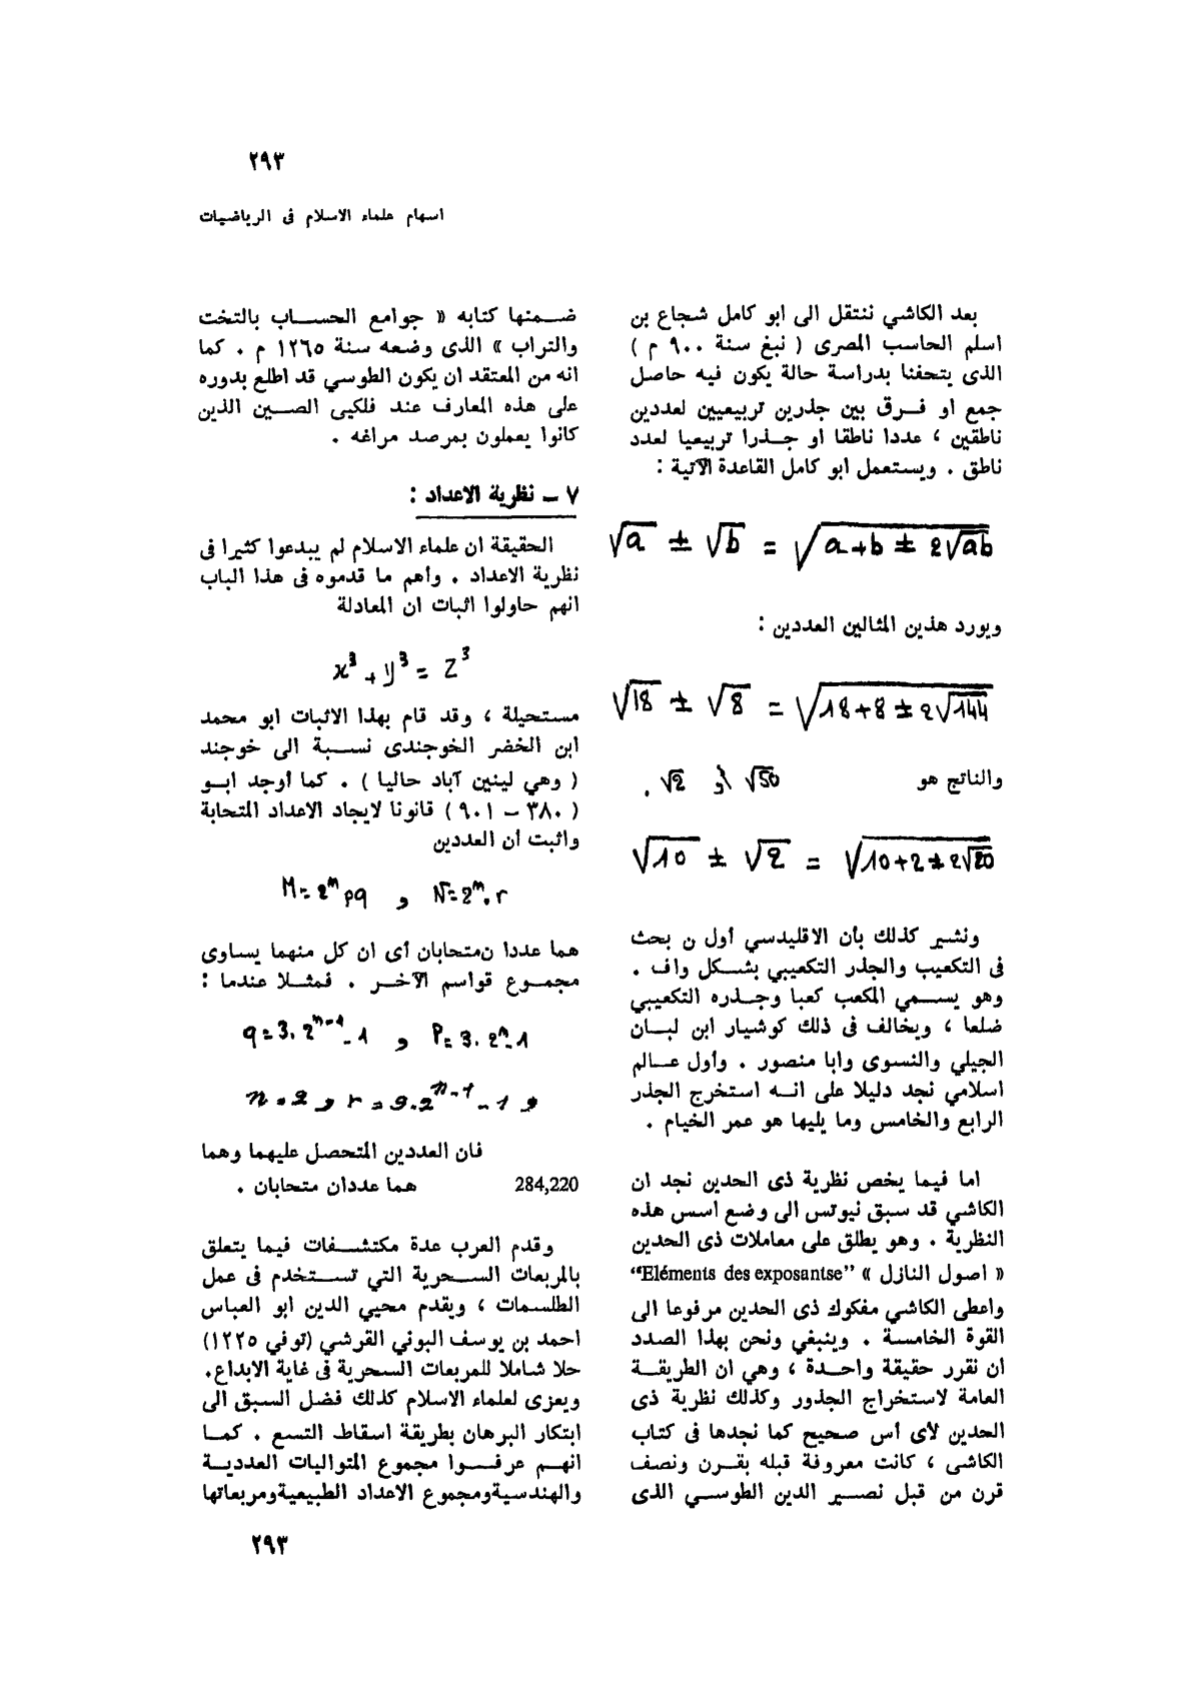 ٢٩٣
اسهام علماء الاسلام فى الرياضيات
بعد الكاشي ننتقل الى ابو كامل شجاع بن
اسلم الحاسب المصرى ( نبغ سنة ٩٠٠ م )
الذى يتحفنا بدراسة حالة يكون فيه حاصل
جمع او فرق بين جذرين تربيعيين لعددين
ناطقين ، عددا ناطقا او جذرا تربيعيا لعدد
ناطق . ويستعمل ابو كامل القاعدة الآتية :
√a ± √b = √(a+b ± 2√ab)
ويورد هذين المثالين العددين :
√18 ± √8 = √(18+8 ± 2√144)
والناتج هو √50 و √2 .
√10 ± √2 = √(10+2 ± 2√20)
ونشير كذلك بأن الاقليدسي أول ن بحث
فى التكعيب والجذر التكعيبي بشكل واف .
وهو يسمي المكعب كعبا وجذره التكعيبي
ضلعا ، ويخالف فى ذلك كوشيار ابن لبان
الجيلي والنسوى وابا منصور . وأول عالم
اسلامي نجد دليلا على انه استخرج الجذر
الرابع والخامس وما يليها هو عمر الخيام .
اما فيما يخص نظرية ذى الحدين نجد ان
الكاشي قد سبق نيوتس الى وضع اسس هذه
النظرية . وهو يطلق على معاملات ذى الحدين
« اصول النازل » “Eléments des exposantse”
واعطى الكاشي مفكوك ذى الحدين مرفوعا الى
القوة الخامسة . وينبغي ونحن بهذا الصدد
ان نقرر حقيقة واحدة ، وهي ان الطريقة
العامة لاستخراج الجذور وكذلك نظرية ذى
الحدين لأى أس صحيح كما نجدها فى كتاب
الكاشى ، كانت معروفة قبله بقرن ونصف
قرن من قبل نصير الدين الطوسي الذى
ضمنها كتابه « جوامع الحساب بالتخت
والتراب » الذى وضعه سنة ١٢٦٥ م . كما
انه من المعتقد ان يكون الطوسي قد اطلع بدوره
على هذه المعارف عند فلكيى الصين الذين
كانوا يعملون بمرصد مراغه .
٧ – نظرية الاعداد :
الحقيقة ان علماء الاسلام لم يبدعوا كثيرا فى
نظرية الاعداد . وأهم ما قدموه فى هذا الباب
انهم حاولوا اثبات ان المعادلة
x³ + y³ = z³
مستحيلة ، وقد قام بهذا الاثبات ابو محمد
ابن الخضر الخوجندى نسبة الى خوجند
( وهي لينين آباد حاليا ) . كما أوجد ابو
( ٣٨٠ – ٩٠١ ) قانونا لايجاد الاعداد المتحابة
واثبت أن العددين
M = 2ᵐ pq و N = 2ᵐ.r
هما عددا نمتحابان أى ان كل منهما يساوى
مجموع قواسم الآخر . فمثلا عندما :
q = 3. 2ⁿ⁻¹ - 1 و P = 3. 2ⁿ - 1
n = 2 و r = 9.2ⁿ⁻¹ - 1 و
فان العددين المتحصل عليهما وهما
284,220 هما عددان متحابان .
وقدم العرب عدة مكتشفات فيما يتعلق
بالمربعات السحرية التي تستخدم فى عمل
الطلسمات ، ويقدم محيي الدين ابو العباس
احمد بن يوسف البوني القرشي (توفي ١٢٢٥)
حلا شاملا للمربعات السحرية فى غاية الابداع.
ويعزى لعلماء الاسلام كذلك فضل السبق الى
ابتكار البرهان بطريقة اسقاط التسع . كما
انهم عرفوا مجموع المتواليات العددية
والهندسيةومجموع الاعداد الطبيعيةومربعاتها
٢٩٣